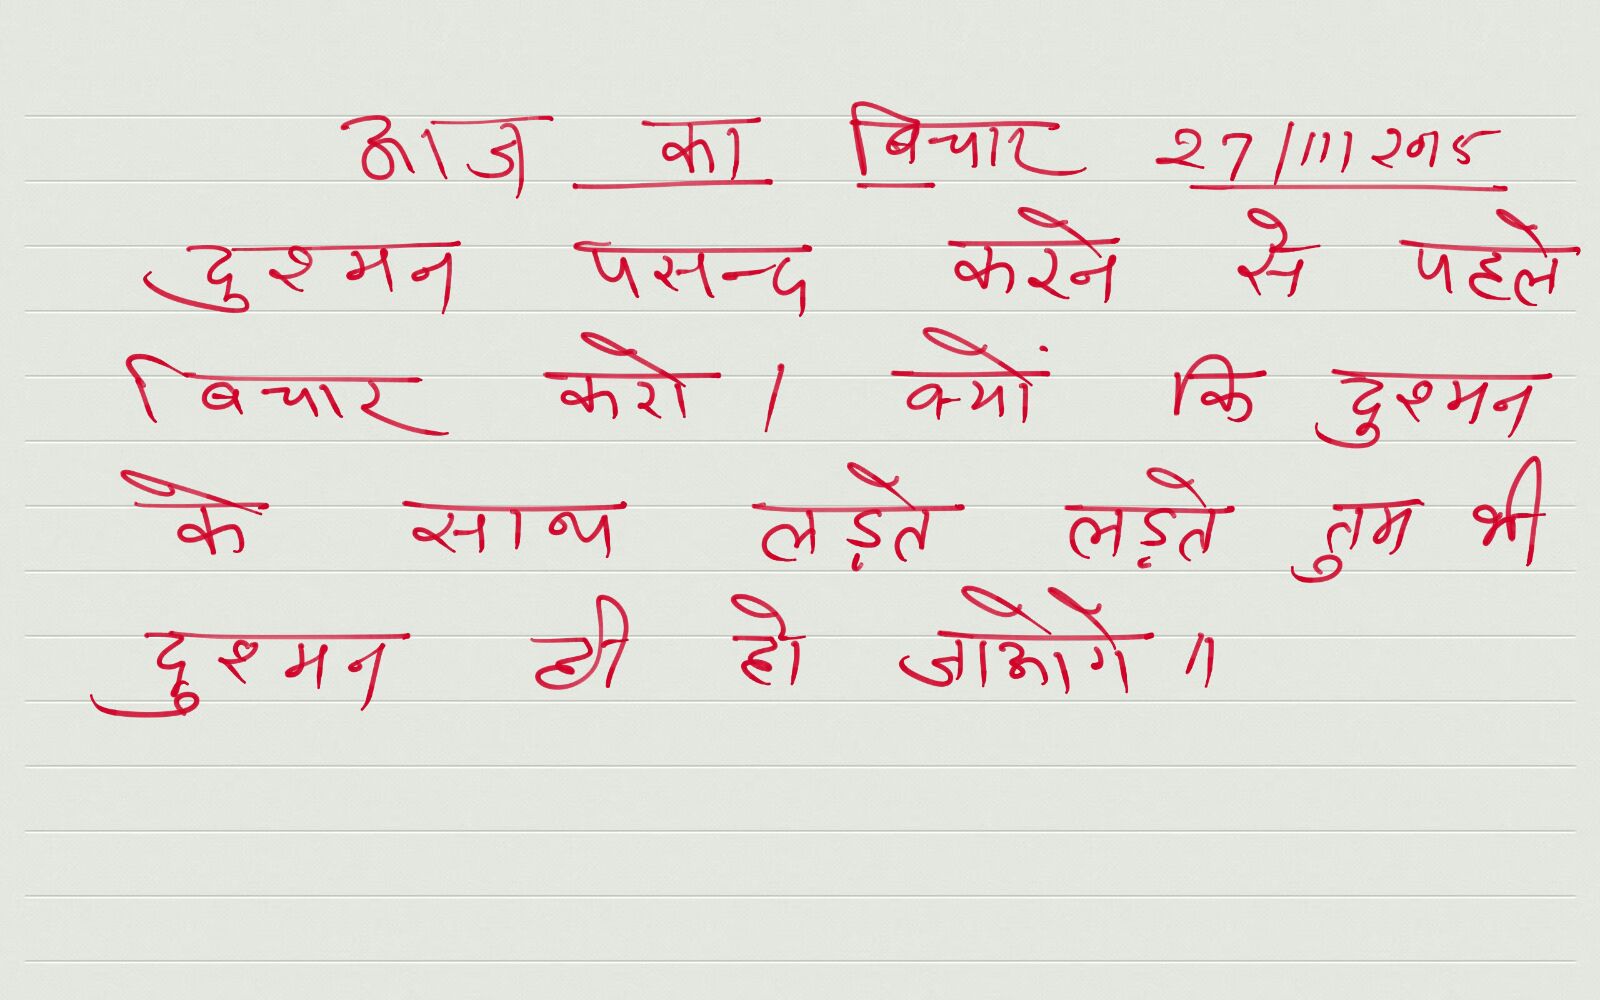 आज का बिचार 27/11/2015
दुश्मन पसन्द करने से पहले
बिचार करो । क्यों कि दुश्मन
के साथ लड़ते लड़ते तुम भी
दुश्मन ही हो जाओगे ॥